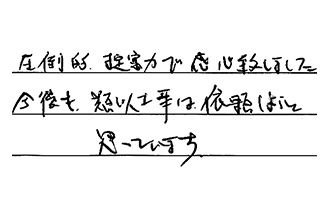 圧倒的、提案力で感心致しました
今後も、類似工事は、依頼しようと
思っています